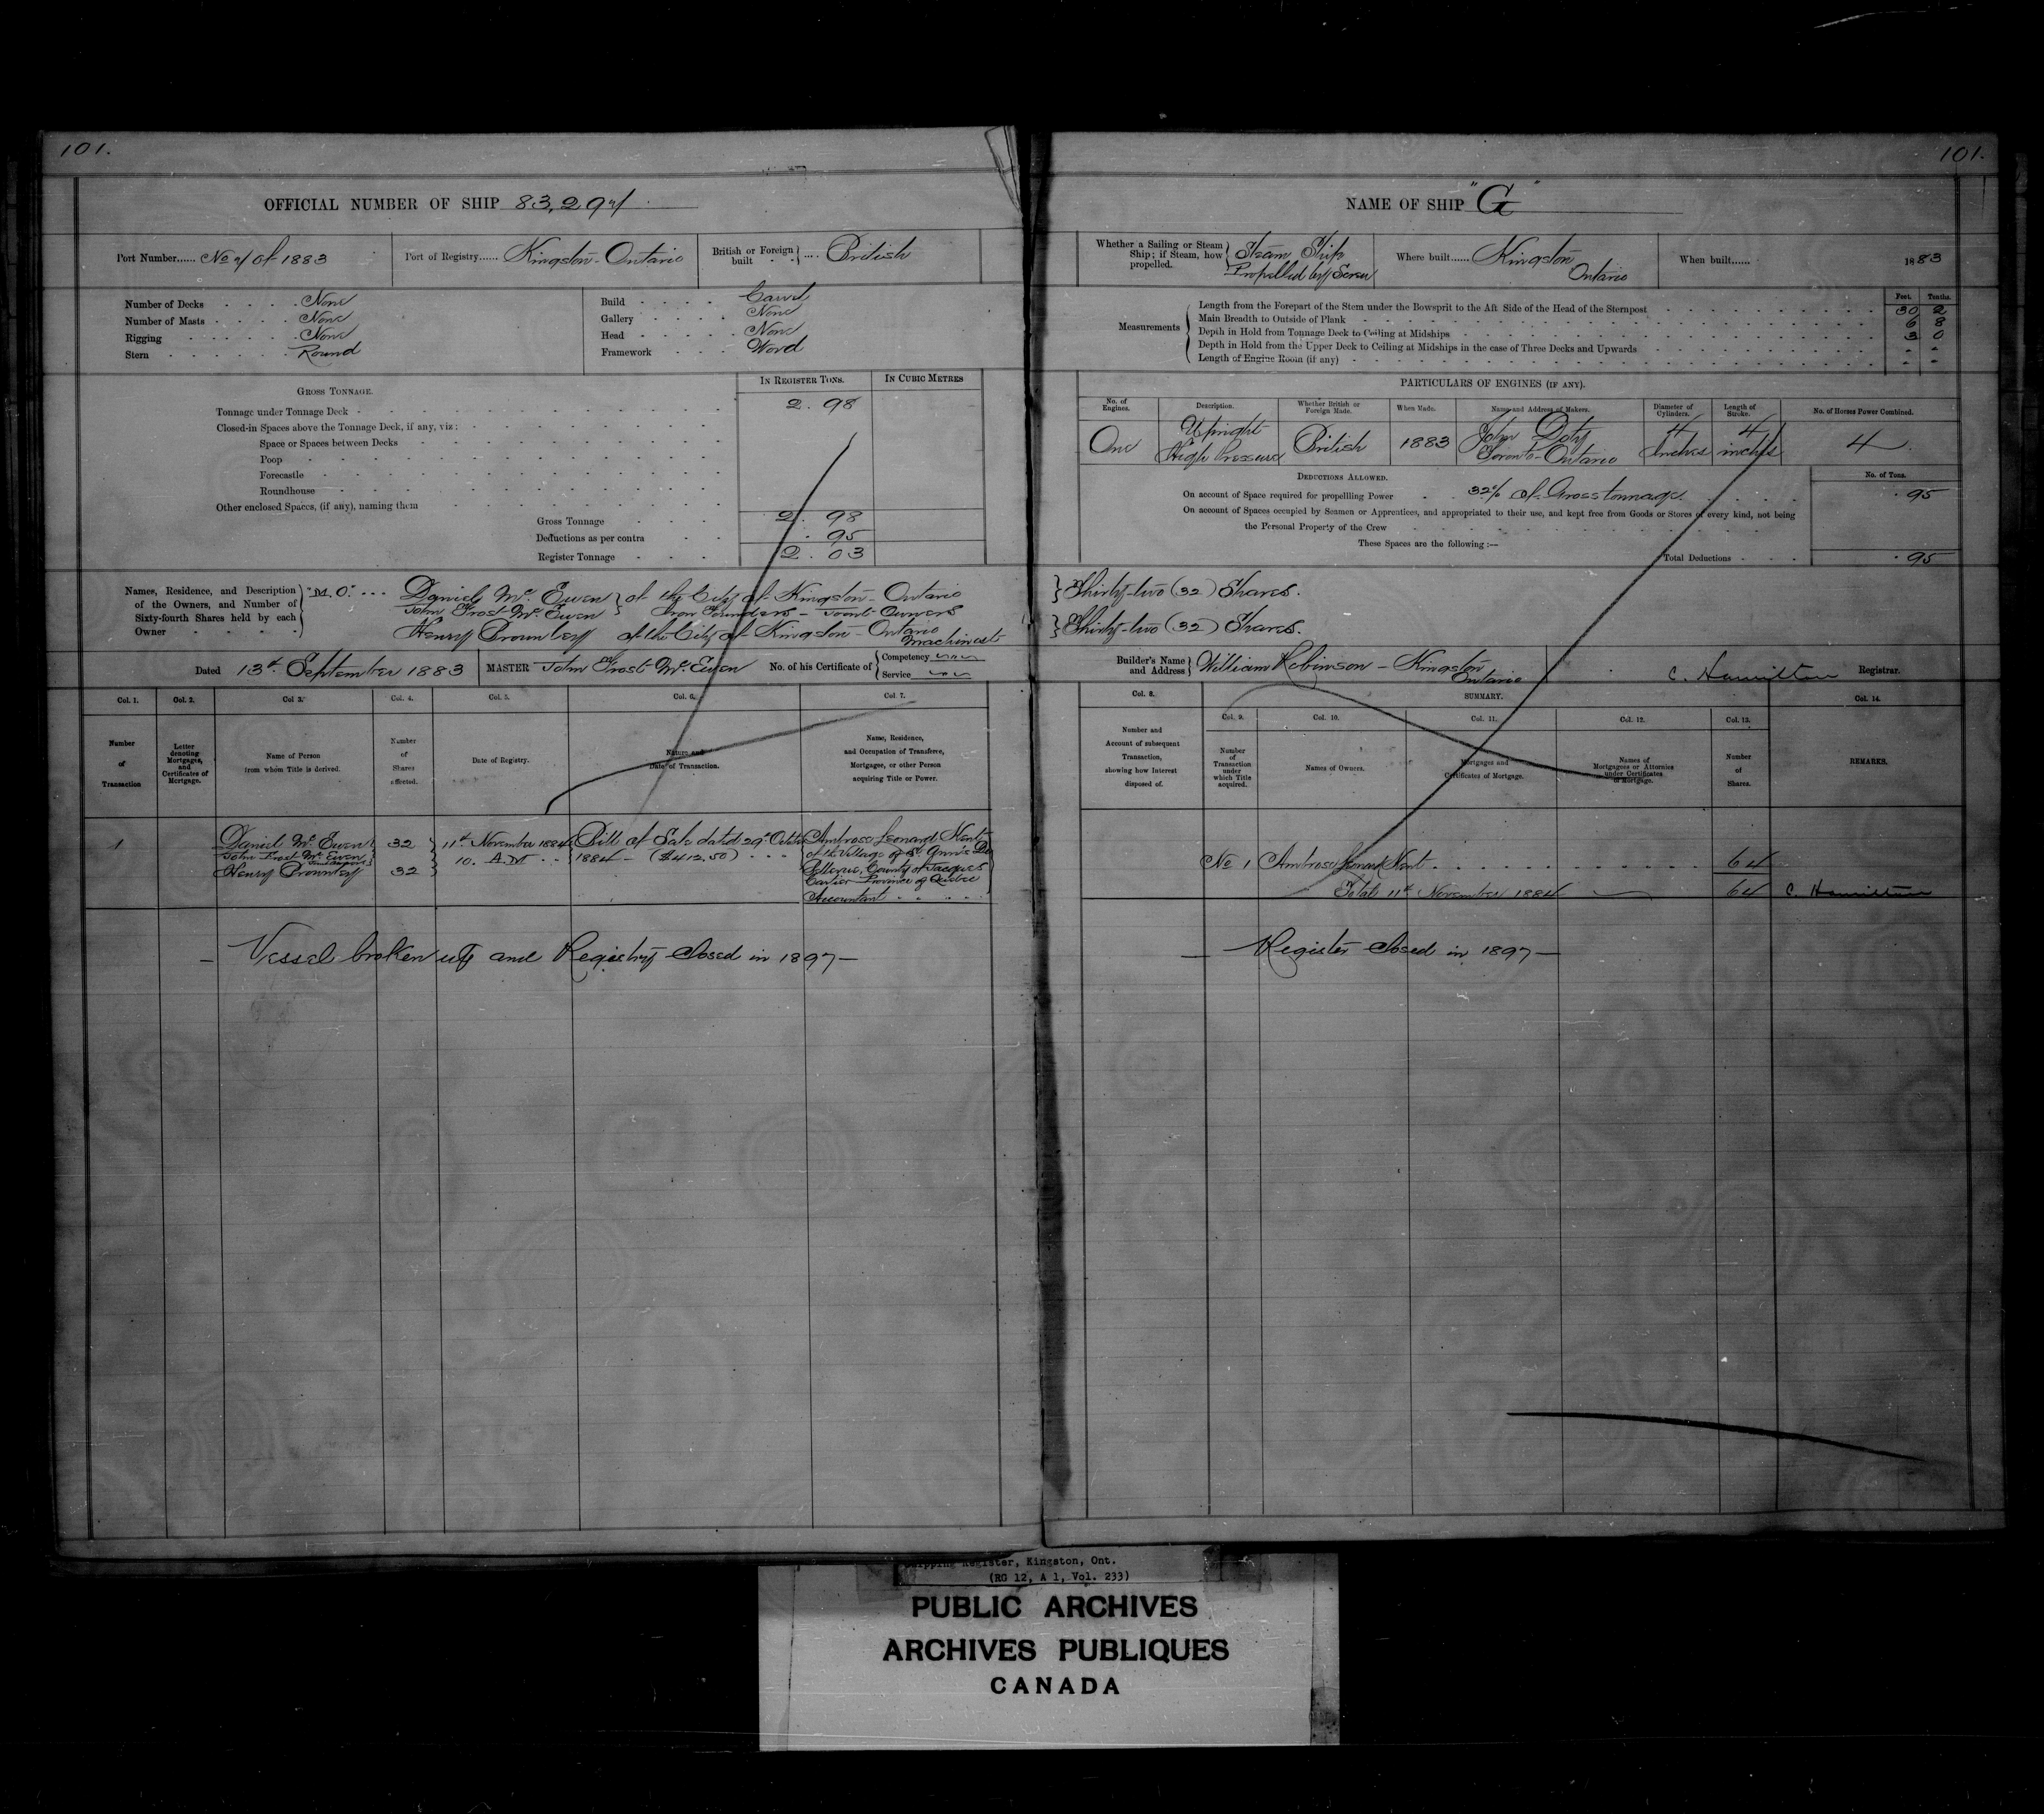 101.
OFFICIAL NUMBER OF SHIP 83,297
Port Number...... No 7 of 1883
Port of Registry...... Kingston - Ontario
British or Foreign built .... British
Number of Decks None
Number of Masts None
Rigging None
Stern Round
Build Carvel
Gallery None
Head None
Framework Wood
GROSS TONNAGE.
IN REGISTER TONS.
IN CUBIC METRES
Tonnage under Tonnage Deck 2.98
Closed-in Spaces above the Tonnage Deck, if any, viz:
Space or Spaces between Decks
Poop
Forecastle
Roundhouse
Other enclosed Spaces, (if any), naming them
Gross Tonnage 2.98
Deductions as per contra .95
Register Tonnage 2.03
Names, Residence, and Description of the Owners, and Number of Sixty-fourth Shares held by each Owner
"M.O." ...
Daniel McEwen
John Frost McEwen } of the City of Kingston - Ontario
Iron Founders - Joint Owners
Henry Brownley of the City of Kingston - Ontario
Machinist
Dated 13th September 1883
MASTER John Frost McEwen
No. of his Certificate of { Competency
Service
Col. 1.
Col. 2.
Col 3.
Col. 4.
Col. 5.
Col. 6.
Col. 7.
Number of Transaction
Letter denoting Mortgages, and Certificates of Mortgage.
Name of Person from whom Title is derived.
Number of Shares effected.
Date of Registry.
Nature and Date of Transaction.
Name, Residence, and Occupation of Transferee, Mortgagee, or other Person acquiring Title or Power.
1
Daniel McEwen
John Frost McEwen
Joint owners } 32
Henry Brownley 32
11th November 1884
10. A.M. ..
Bill of Sale dated 29th October
1884 - ($412.50) ...
Ambrose Leonard Kent
of the Village of St. Ann's De
Bellevue, County of Jacques
Cartier Province of Quebec
Accountant
- Vessel broken up and Registry closed in 1897 -
101.
NAME OF SHIP "G"
Whether a Sailing or Steam Ship; if Steam, how propelled.
Steam Ship
Propelled by Screw
Where built...... Kingston
Ontario
When built...... 1883
Feet. Tenths.
Measurements
Length from the Forepart of the Stem under the Bowsprit to the Aft Side of the Head of the Sternpost 30 2
Main Breadth to Outside of Plank 6 8
Depth in Hold from Tonnage Deck to Ceiling at Midships 3 0
Depth in Hold from the Upper Deck to Ceiling at Midships in the case of Three Decks and Upwards
Length of Engine Room (if any)
PARTICULARS OF ENGINES (IF ANY).
No. of Engines.
Description.
Whether British or Foreign Made.
When Made.
Name and Address of Makers.
Diameter of Cylinders.
Length of Stroke.
No. of Horses Power Combined.
One
Upright
High Pressure
British
1883
John Doty
Toronto - Ontario
4
Inches
4
inches
4
DEDUCTIONS ALLOWED.
No. of Tons.
On account of Space required for propelling Power 32% of Gross tonnage. .95
On account of Spaces occupied by Seamen or Apprentices, and appropriated to their use, and kept free from Goods or Stores of every kind, not being
the Personal Property of the Crew
These Spaces are the following:—
Total Deductions .95
} Thirty-two (32) Shares.
} Thirty-two (32) Shares.
Builder's Name and Address } William Robinson - Kingston
Ontario
C. Hamilton Registrar.
Col. 8.
SUMMARY.
Col. 14.
Col. 9.
Col. 10.
Col. 11.
Col. 12.
Col. 13.
Number and Account of subsequent Transaction, showing how Interest disposed of.
Number of Transaction under which Title acquired.
Names of Owners.
Mortgages and Certificates of Mortgage.
Names of Mortgagees or Attornies under Certificates of Mortgage.
Number of Shares.
REMARKS.
No 1 Ambrose Leonard Kent 64
Total 11th November 1884 64 C. Hamilton
- Register closed in 1897 -
Shipping Register, Kingston, Ont.
(RG 12, A 1, Vol. 233)
PUBLIC ARCHIVES
ARCHIVES PUBLIQUES
CANADA